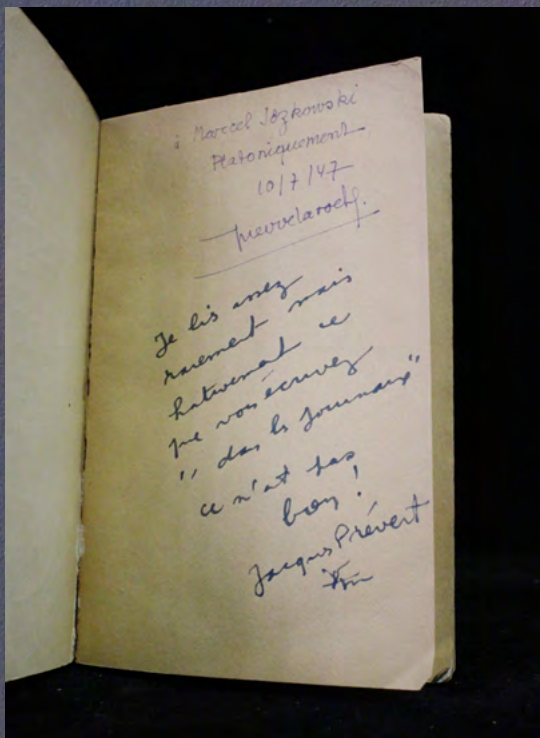 à Marcel Idzkowski
Platoniquement
10/7/47
pierrelaroche.
Je lis assez
rarement mais
hativement ce
que vous écrivez
"dans les journaux"
ce n'est pas
bien !
Jacques Prévert